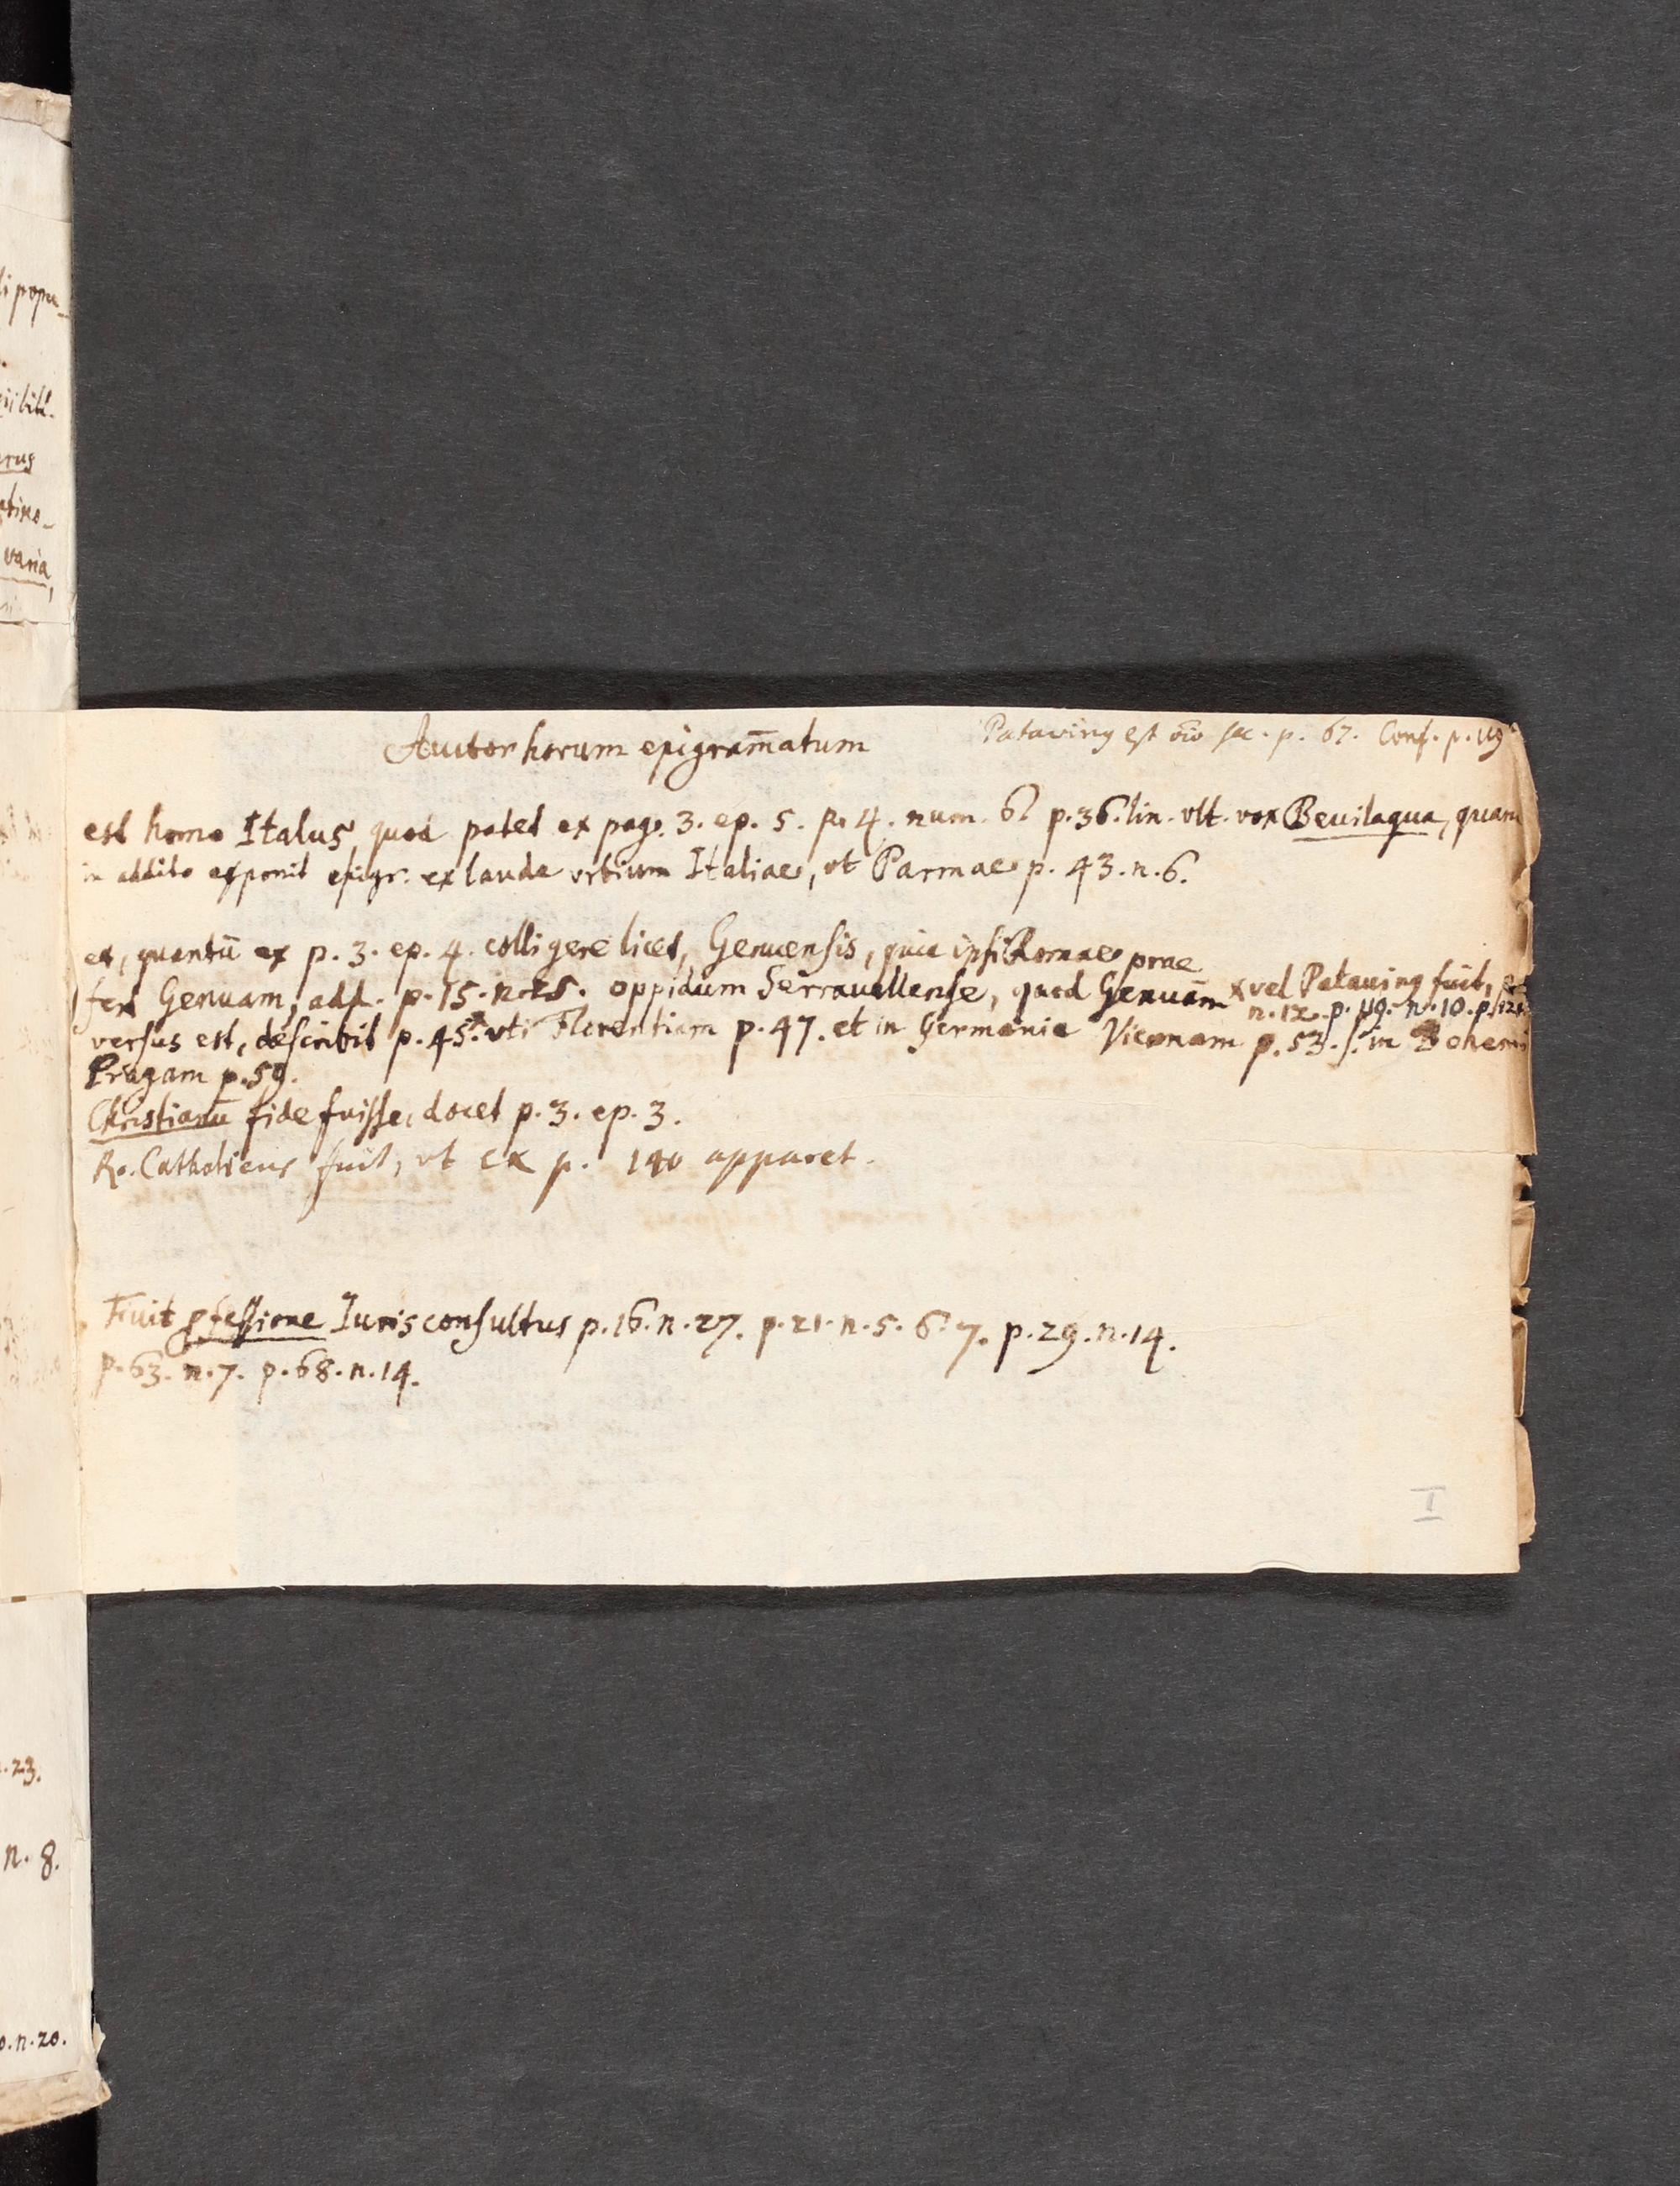 Autor horum epigram̄atum
Patavinus est sec. p. 67. Conf. p. 119
est homo Italus, quod patet ex pag. 3. ep. 5. p. 4. num. 6. p. 36. lin. vlt. vox Beuilaqua, quam
in addito exponit epigr. ex laude vrbium Italiae, vt Parmae p. 43. n. 6.
et, quantū ex p. 3. ep. 4. colligere licet, Genuensis, quia ipsi Romae prae
fert Genuam, add. p. 15. n. 25. oppidum Serrauallense, quod Genuam
x vel Patauinus fuit,
n. 12. p. 119. n. 10. p. 121
versus est, describit p. 45. x vti Florentiam p. 47. et in Germania Viennam p. 53. s. in Bohemi
Pragam p. 59.
Christianū fide fuisse, docet p. 3. ep. 3.
Ro. Catholicus fuit, vt ex p. 140 apparet.
Fuit pfessione Iurisconsultus p. 16. n. 27. p. 21. n. 5. 6. 7. p. 29. n. 14.
p. 63. n. 7. p. 68. n. 14.
I
i popu-
rus
varia,
. 23.
n. 8.
o. n. 20.